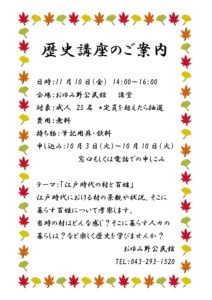 歴史講座のご案内
日時:11月10日(金) 14:00~16:00
会場:おゆみ野公民館 講堂
対象:成人 25名 *定員を超えたら抽選
費用:無料
持ち物:筆記用具・飲料
申し込み:10月3日(火)~10月10日(火)
窓口もしくは電話での申しこみ
テーマ:「江戸時代の村と百姓」
江戸時代における村の景観や状況、そこに
暮らす百姓について考察します。
当時の村はどんな感じ?そこに暮らす人々の
暮らしは?など楽しく歴史を学びませんか?
おゆみ野公民館
TEL:043-293-1520